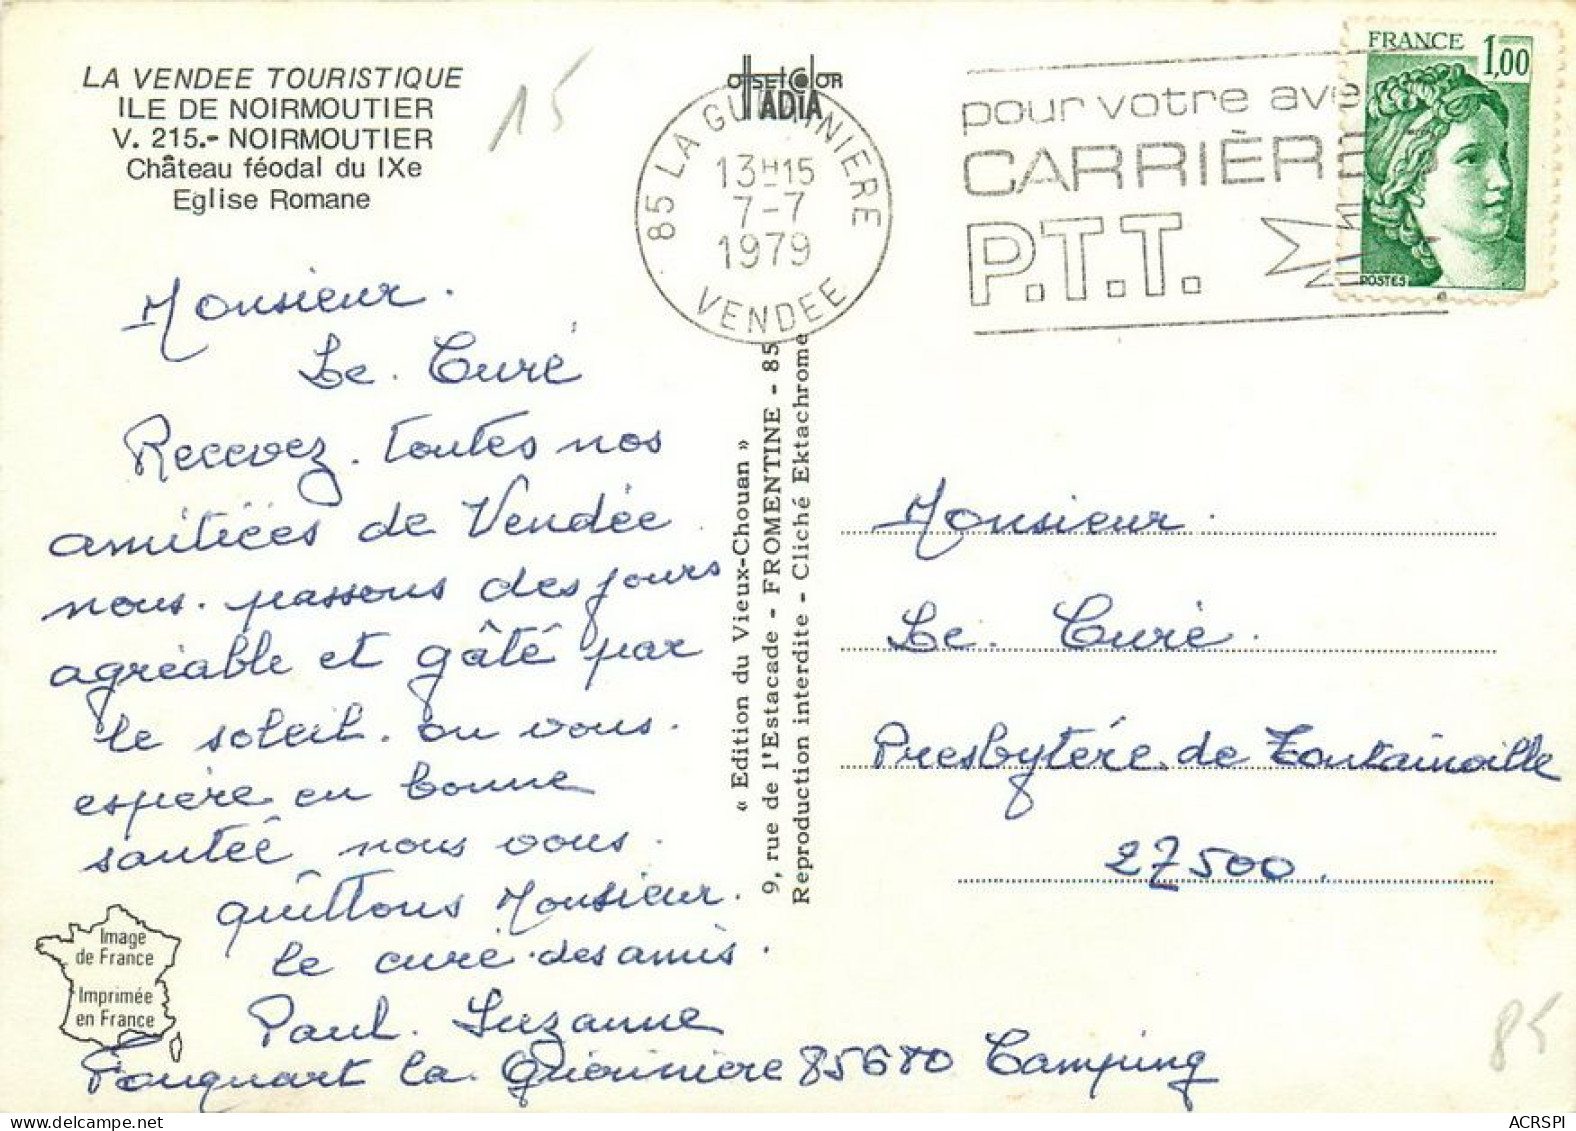 LA VENDEE TOURISTIQUE
ILE DE NOIRMOUTIER
V. 215.- NOIRMOUTIER
Château féodal du IXe
Eglise Romane
15
Monsieur.
Le. Curé
Recevez. toutes nos
amitiées de Vendée
nous. passons des jours
agréable et gâté par
le soleil. on vous.
espère en bonne
santéé nous vous.
quittons Monsieur.
le curé. des amis.
Paul. Suzanne
Fouquart la Guérinière 85680 Camping
Image
de France
Imprimée
en France
OFFSETCOLOR
ADIA
85 LA GUERINIERE
13H15
7-7
1979
VENDEE
« Edition du Vieux-Chouan »
9, rue de l'Estacade - FROMENTINE - 85
Reproduction interdite - Cliché Ektachrome
pour votre ave
CARRIÈRE
P.T.T.
FRANCE 1,00
POSTES
Monsieur.
Le. Curé.
Presbytére. de
27500.
85
ACRSPI